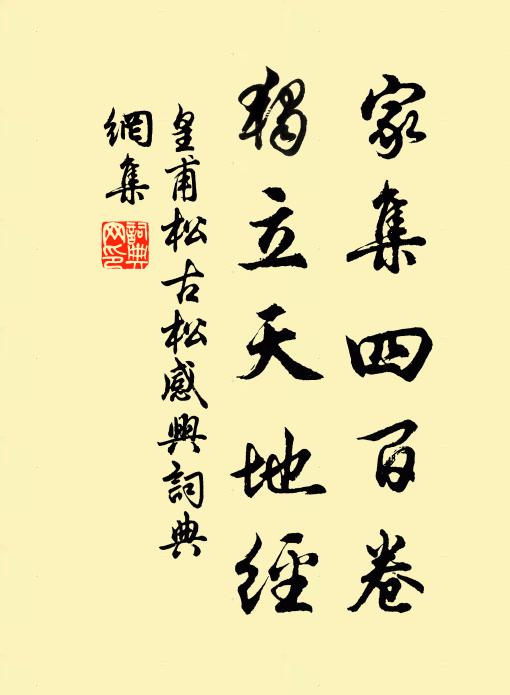 家集四百卷
獨立天地經
皇甫松古松感興詞典
網集
詞典網印